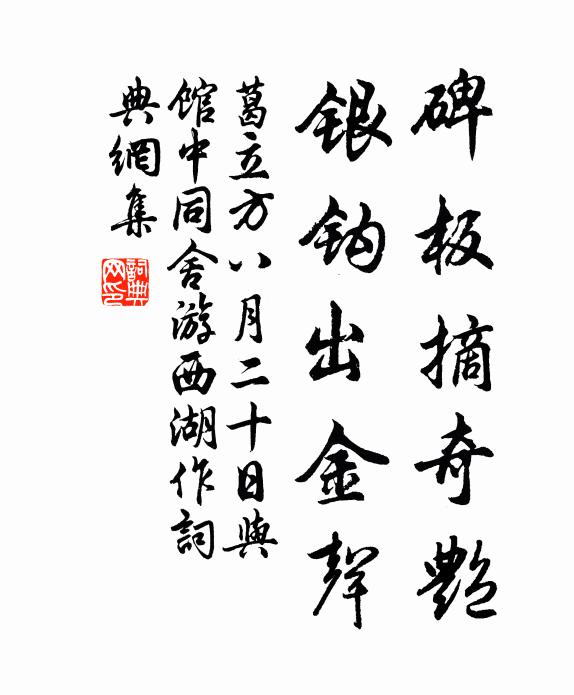 碑板摘奇艷
銀鈎出金聲
葛立方八月二十日與
館中同舍游西湖作詞
典網集
詞典網印